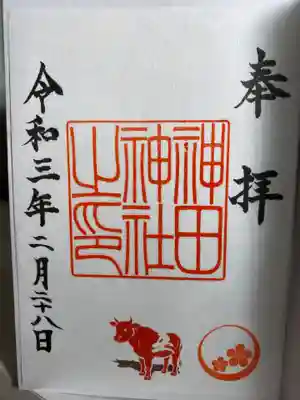 奉拝
神田
神社
之印
令和三年二月二十八日